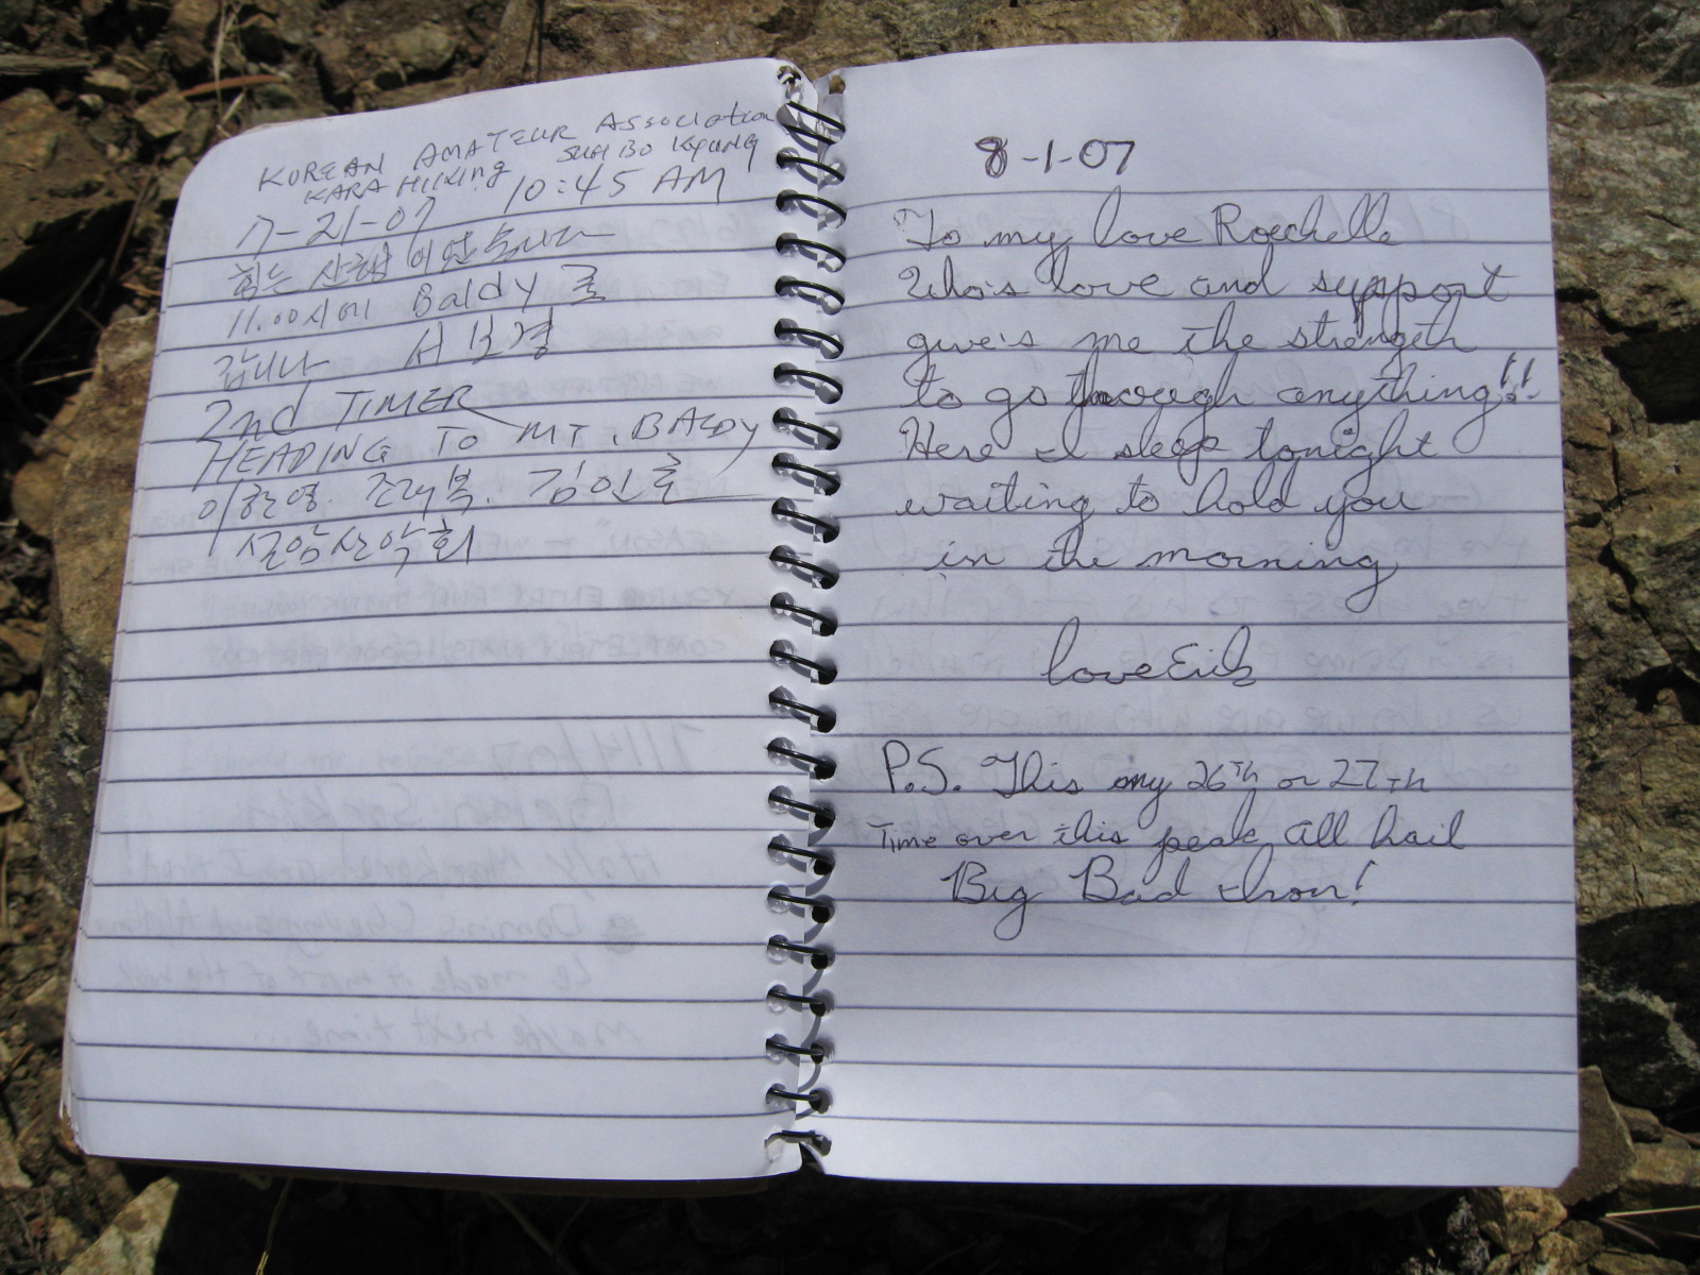 KOREAN AMATEUR ASSOCIATION
KARA HIKING SUH BO KYUNG
7-21-07 10:45 AM
힘는 산행 이였습니다
11.00시에 Baldy 로
갑니다 서보경
2nd TIMER
HEADING TO MT. BALDY
조래복. 김인호
설암산악회
8-1-07
To my love Roechelle
Who's love and support
give's me the strength
to go through anything!!
Here I sleep tonight
waiting to hold you
in the morning
love Eric
P.S. This my 26Th or 27Th
Time over this peak, all hail
Big Bad Iron!